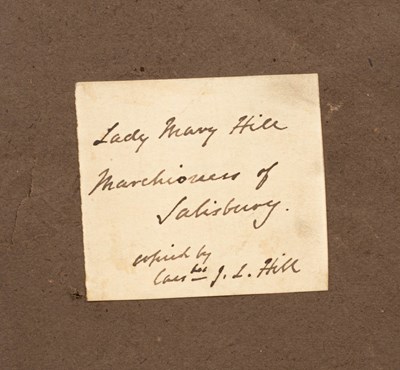 Lady Mary Hill
Marchioness of
Salisbury.
copied by
J. L. Hill